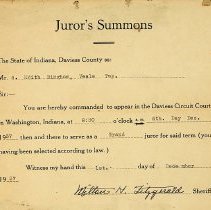 Juror's Summons
The State of Indiana, Daviess County ss:
Mr. s. Keith Dinkens, Veale Twp.
Sir:—
You are hereby commanded to appear in the Daviess Circuit Court
in Washington, Indiana, at 9:30 o'clock a.m. 6th. Day Dec.
1937 and then and there to serve as a Grand juror for said term (you
having been selected according to law.)
Witness my hand this 1st. day of December
1937.
H. Fitzgerald Sheriff